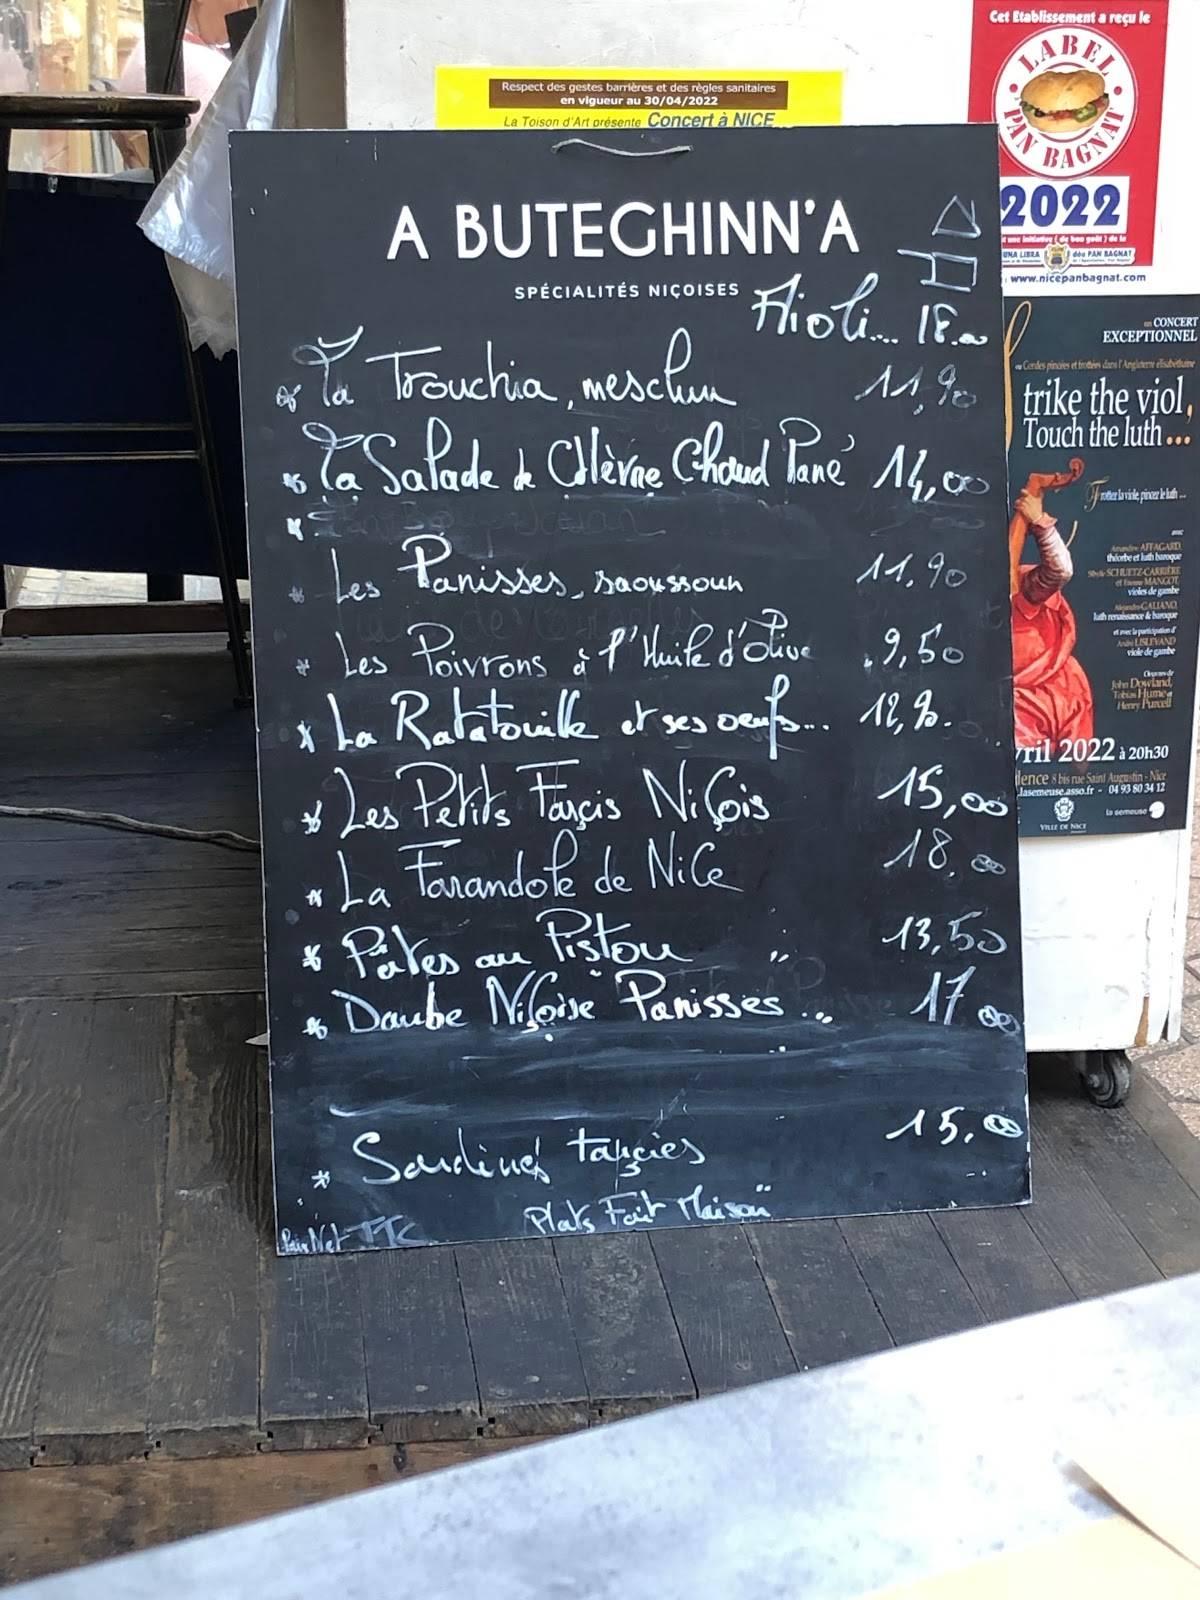 Respect des gestes barrières et des règles sanitaires
en vigueur au 30/04/2022
La Toison d'Art présente Concert à NICE
Cet Etablissement a reçu le
LABEL
PAN BAGNAT
2022
une initiative ( de bon goût ) de la
UNA LIBRA
dóu PAN BAGNAT
www.nicepanbagnat.com
A BUTEGHINN'A
SPÉCIALITÉS NIÇOISES
Aïoli.... 18.00
* La Trouchia, mesclun 11,90
* La Salade de Chèvre Chaud Pané 14,00
*
* Les Panisses, saoussoun 11,90
* Les Poivrons à l'Huile d'Olive 9,50
* La Ratatouille et ses oeufs... 12,90.
* Les Petits Farçis NiÇois 15,00
* La Farandole de NiCe 18,00
* Pâtes au Pistou 13,50
* Daube NiÇoise Panisses ... 17,00
* Sardines farçies 15.00
Plats Fait Maison
Prix Net TTC
en CONCERT
EXCEPTIONNEL
ou Cordes pincées et frottées dans l'Angleterre élisabéthaine
trike the viol,
Touch the luth ...
Frottez la viole, pincez le luth ...
avec
Amandine AFFAGARD,
théorbe et luth baroque
Sibylle SCHUETZ-CARRIÈRE
et Etienne MANGOT,
violes de gambe
Alejandro GALIANO,
luth renaissance & baroque
et avec la participation d'
André LISLEVAND
viole de gambe
Oeuvres de
John Dowland,
Tobias Hume et
Henry Purcell
vril 2022 à 20h30
lence 8 bis rue Saint Augustin - Nice
.lasemeuse.asso.fr - 04 93 80 34 12
VILLE DE NICE
la semeuse